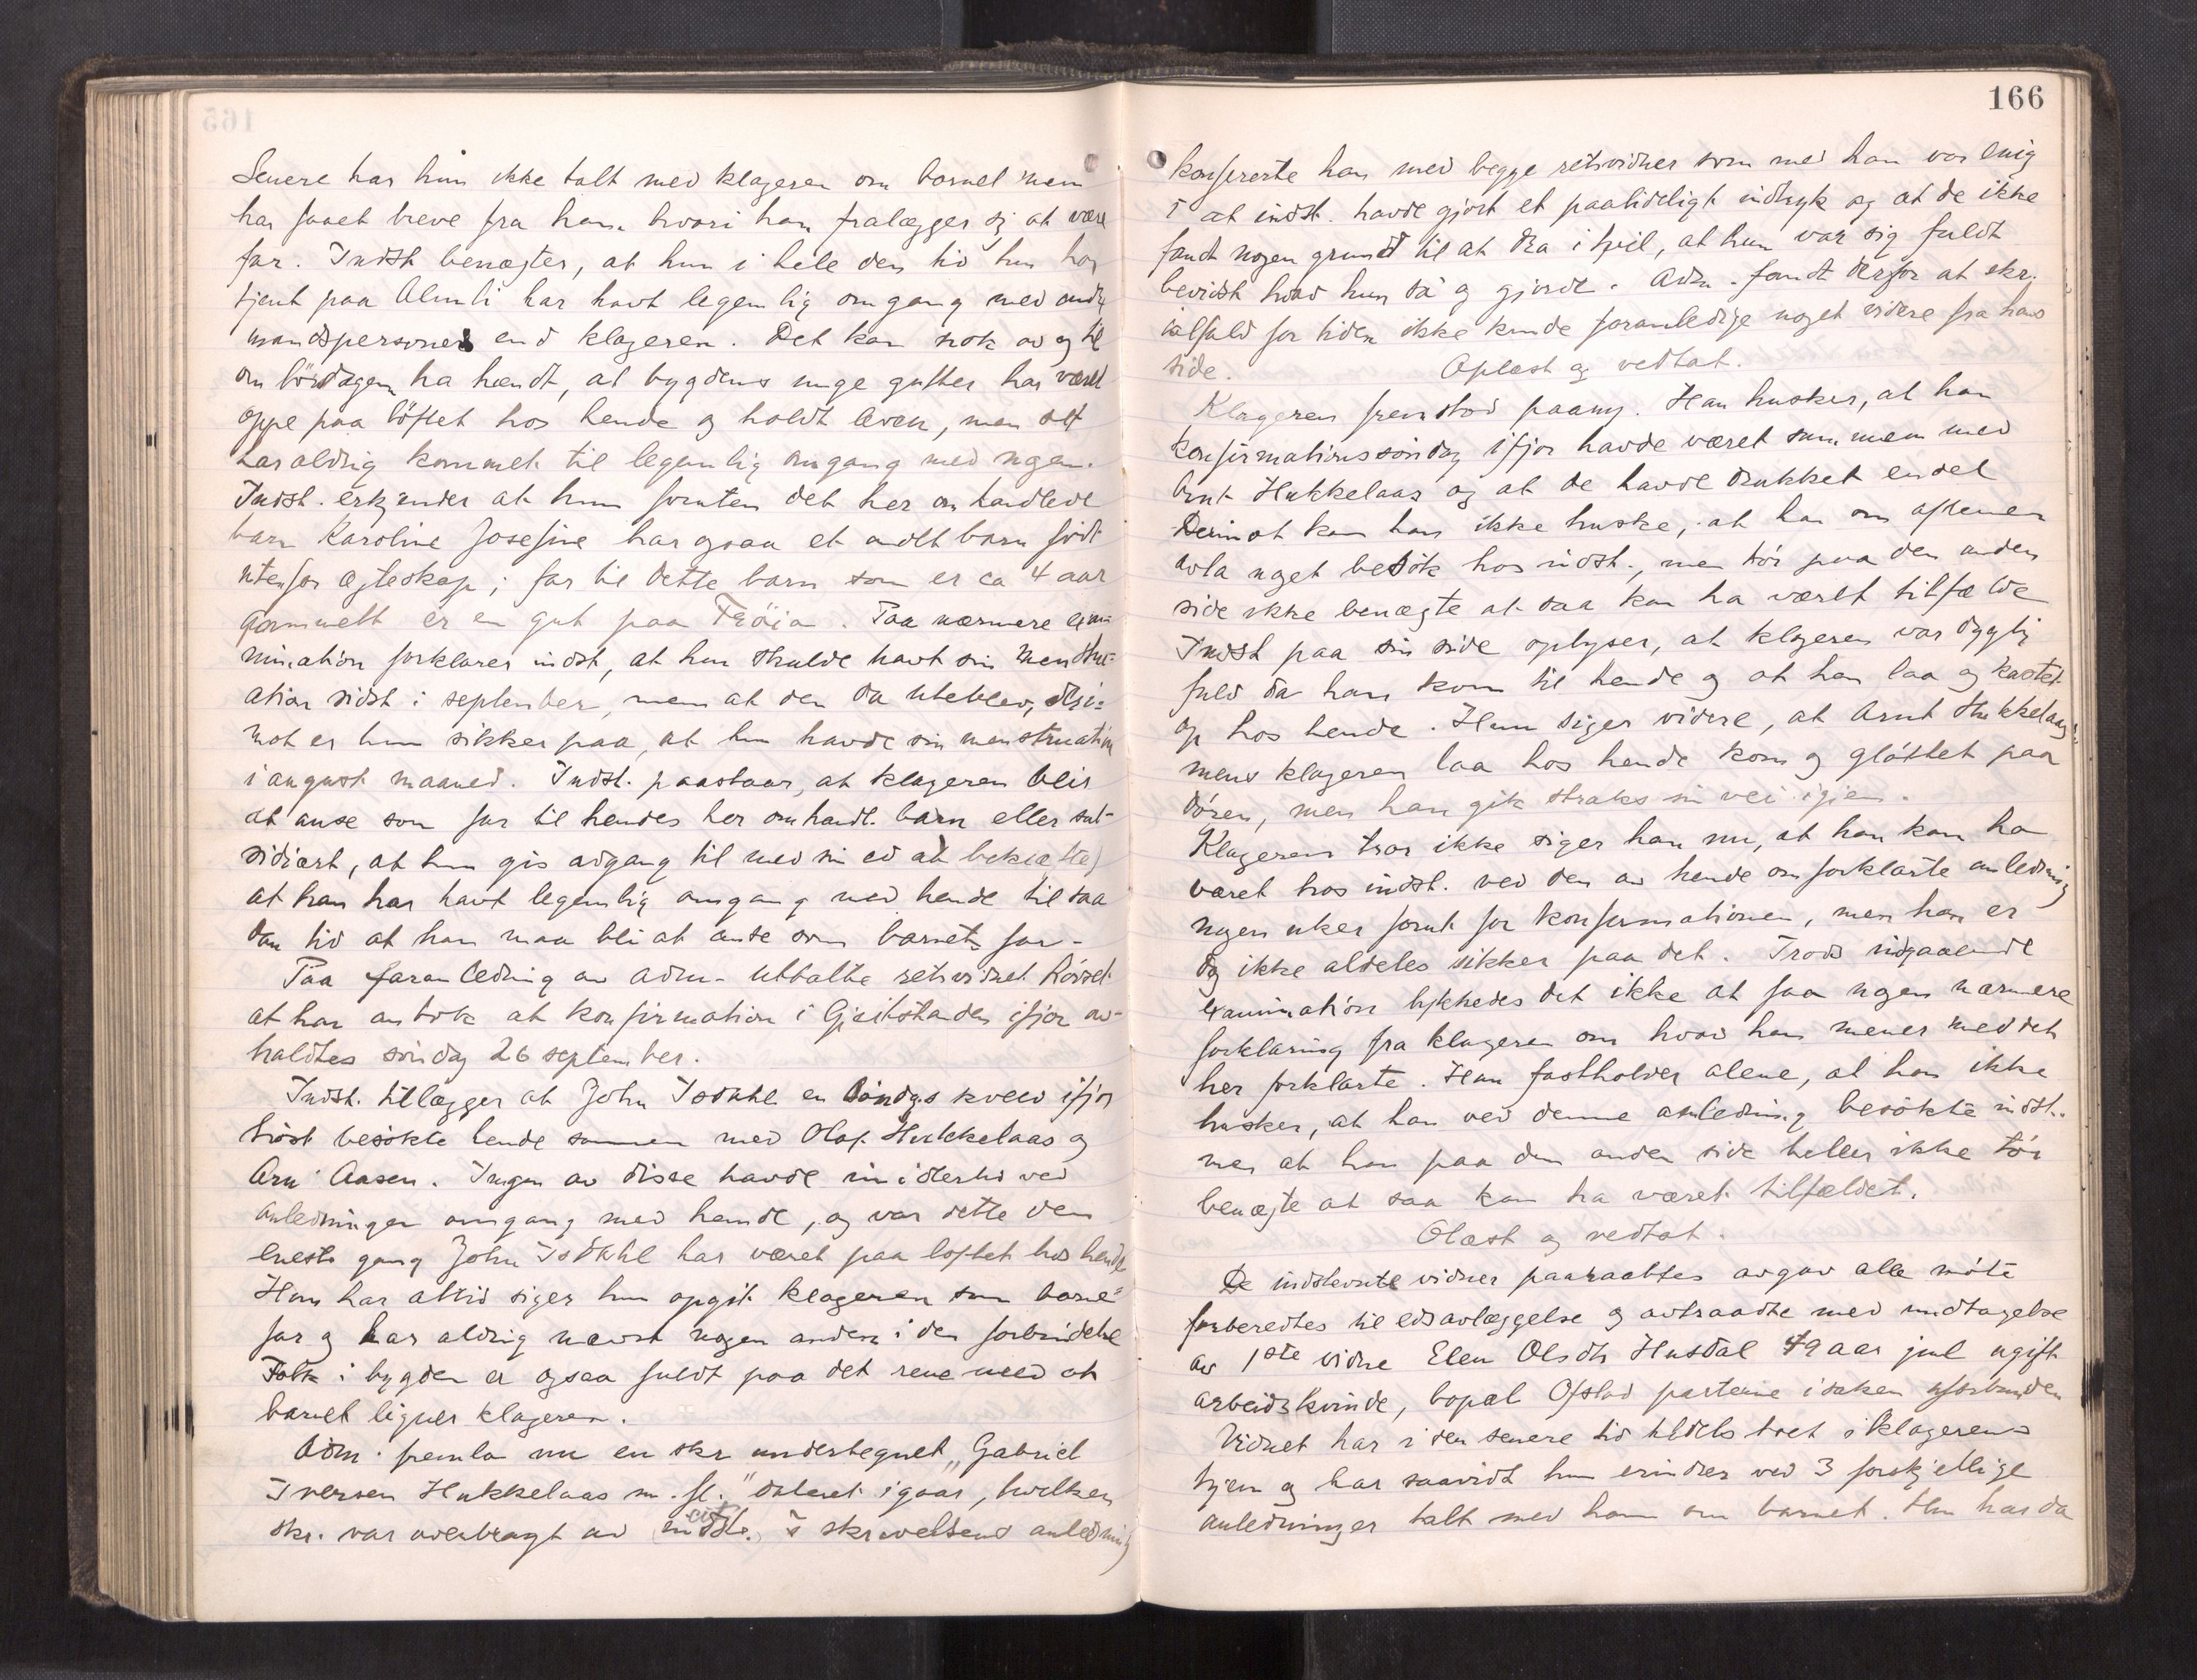 Senere har hun ikke talt med klageren om barnet men
har faaet breve fra ham hvori han fralægger sig at være
far. Indst benægter, at hun i hele den tid hun har
tjent paa Almli har havt legemlig omgang med andre
mandspersoner end klageren. Det kan nok av og til
om lördagen ha hændt, at bygdens unge gutter har været
oppe paa löftet hos hende og holdt leven, men det
har aldrig kommet til legemlig omgang med nogen.
Indst. erkjender at hun foruten det her omhandlede
barn Karoline Josefine har ogsaa et andet barn födt
utenfor egteskap; far til dette barn som er ca 4 aar
gammelt er en gut paa Fröia. Paa nærmere exami-
mination forklarer indst, at hun skulde havt sin menstru-
ation sidst i september, men at den da uteblev, deri-
mot er hun sikker paa, at hun havde sin menstruation
i august maaned. Indst. paastaar, at klageren blir
at anse som far til hendes her omhandl. barn eller sub-
sidiært, at hun gis adgang til med sin ed at bekræfte,
at han har havt legemlig omgang med hende til saa
dan tid at han maa bli at anse som barnets far-
Paa foranledning av adm. uttalte retsvidnet
at han antok at konfirmation i Gjeitstranden ifjor av-
holdtes söndag 26 september.
Indst. tillægger at John Isdahl en söndags kveld ifjor
höst besökte hende sammen med Olaf Hukkelaas og
Arn Aasen. Ingen av disse havde imidlertid ved
anledningen omgang med hende, og var dette den
eneste gang John Isdahl har været paa loftet hos hende
Hun har altid siger hun opgit klageren som barne-
far og har aldrig nævnt nogen anden i den forbindelse
Folk i bygden er ogsaa fuldt paa det rene med at
barnet ligner klageren.
Adm. fremla nu en skr undertegnet „Gabriel
Iversen Hukkelaas m. fl." dateret igaar, hvilken
skr. var overbragt av indst. I skrivelsens anledning
166
konfererte han med begge retsvidner som med han var enig
i at indst. havde gjort et paalideligt indtryk og at de ikke
fandt nogen grund til at dra i tvil, at hun var sig fuldt
bevidst hvad hun sa og gjorde. Adm. fandt derfor at skr.
ialfald for tiden ikke kunde foranledige noget videre fra hans
side. Oplæst og vedtat.
Klageren fremstod paany. Han husker, at han
konfirmationssöndag ifjor havde været sammen med
Arnt Hukkelaas og at de havde drukket endel
Derimot kan han ikke huske, at han om aftenen
avla noget besök hos indst., men tör paa den anden
side ikke benægte at saa kan ha været tilfælde
Indst paa sin side oplyser, at klageren var dygtig
fuld da han kom til hende og at han laa og kastet
op hos hende. Hun siger videre, at Arnt Hukkelaas
mens klageren laa hos hende kom og gløttet paa
dören, men han gik straks sin vei igjen.
Klageren tror ikke siger han nu, at han kan ha
været hos indst. ved den av hende omforklarte anledning
nogen uker forut for konfirmationen, men han er
dog ikke aldeles sikker paa det. Trods indgaaende
examination lykkedes det ikke at faa nogen nærmere
forklaring fra klageren om hvad han mener med det
her forklarte. Han fastholder alene, at han ikke
husker, at han ved denne anledning besökte indst.
men at han paa den anden side heller ikke tör
benægte at saa kan ha været tilfældet.
Olæst og vedtat.
De indstevnte vidner paaraabtes avgav alle möte
forberedtes til edsavlæggelse og avtraadte med undtagelse
av 1ste vidne Elen Olsdtr Husdal 49 aar gml ugift
arbeidskvinde, bopæl Ofstad parterne i saken uforbunden
Vidnet har i den senere tid tildels boet i klagerens
hjem og har saavidt hun erindrer ved 3 forskjellige
anledninger talt med ham om barnet. Hun har da